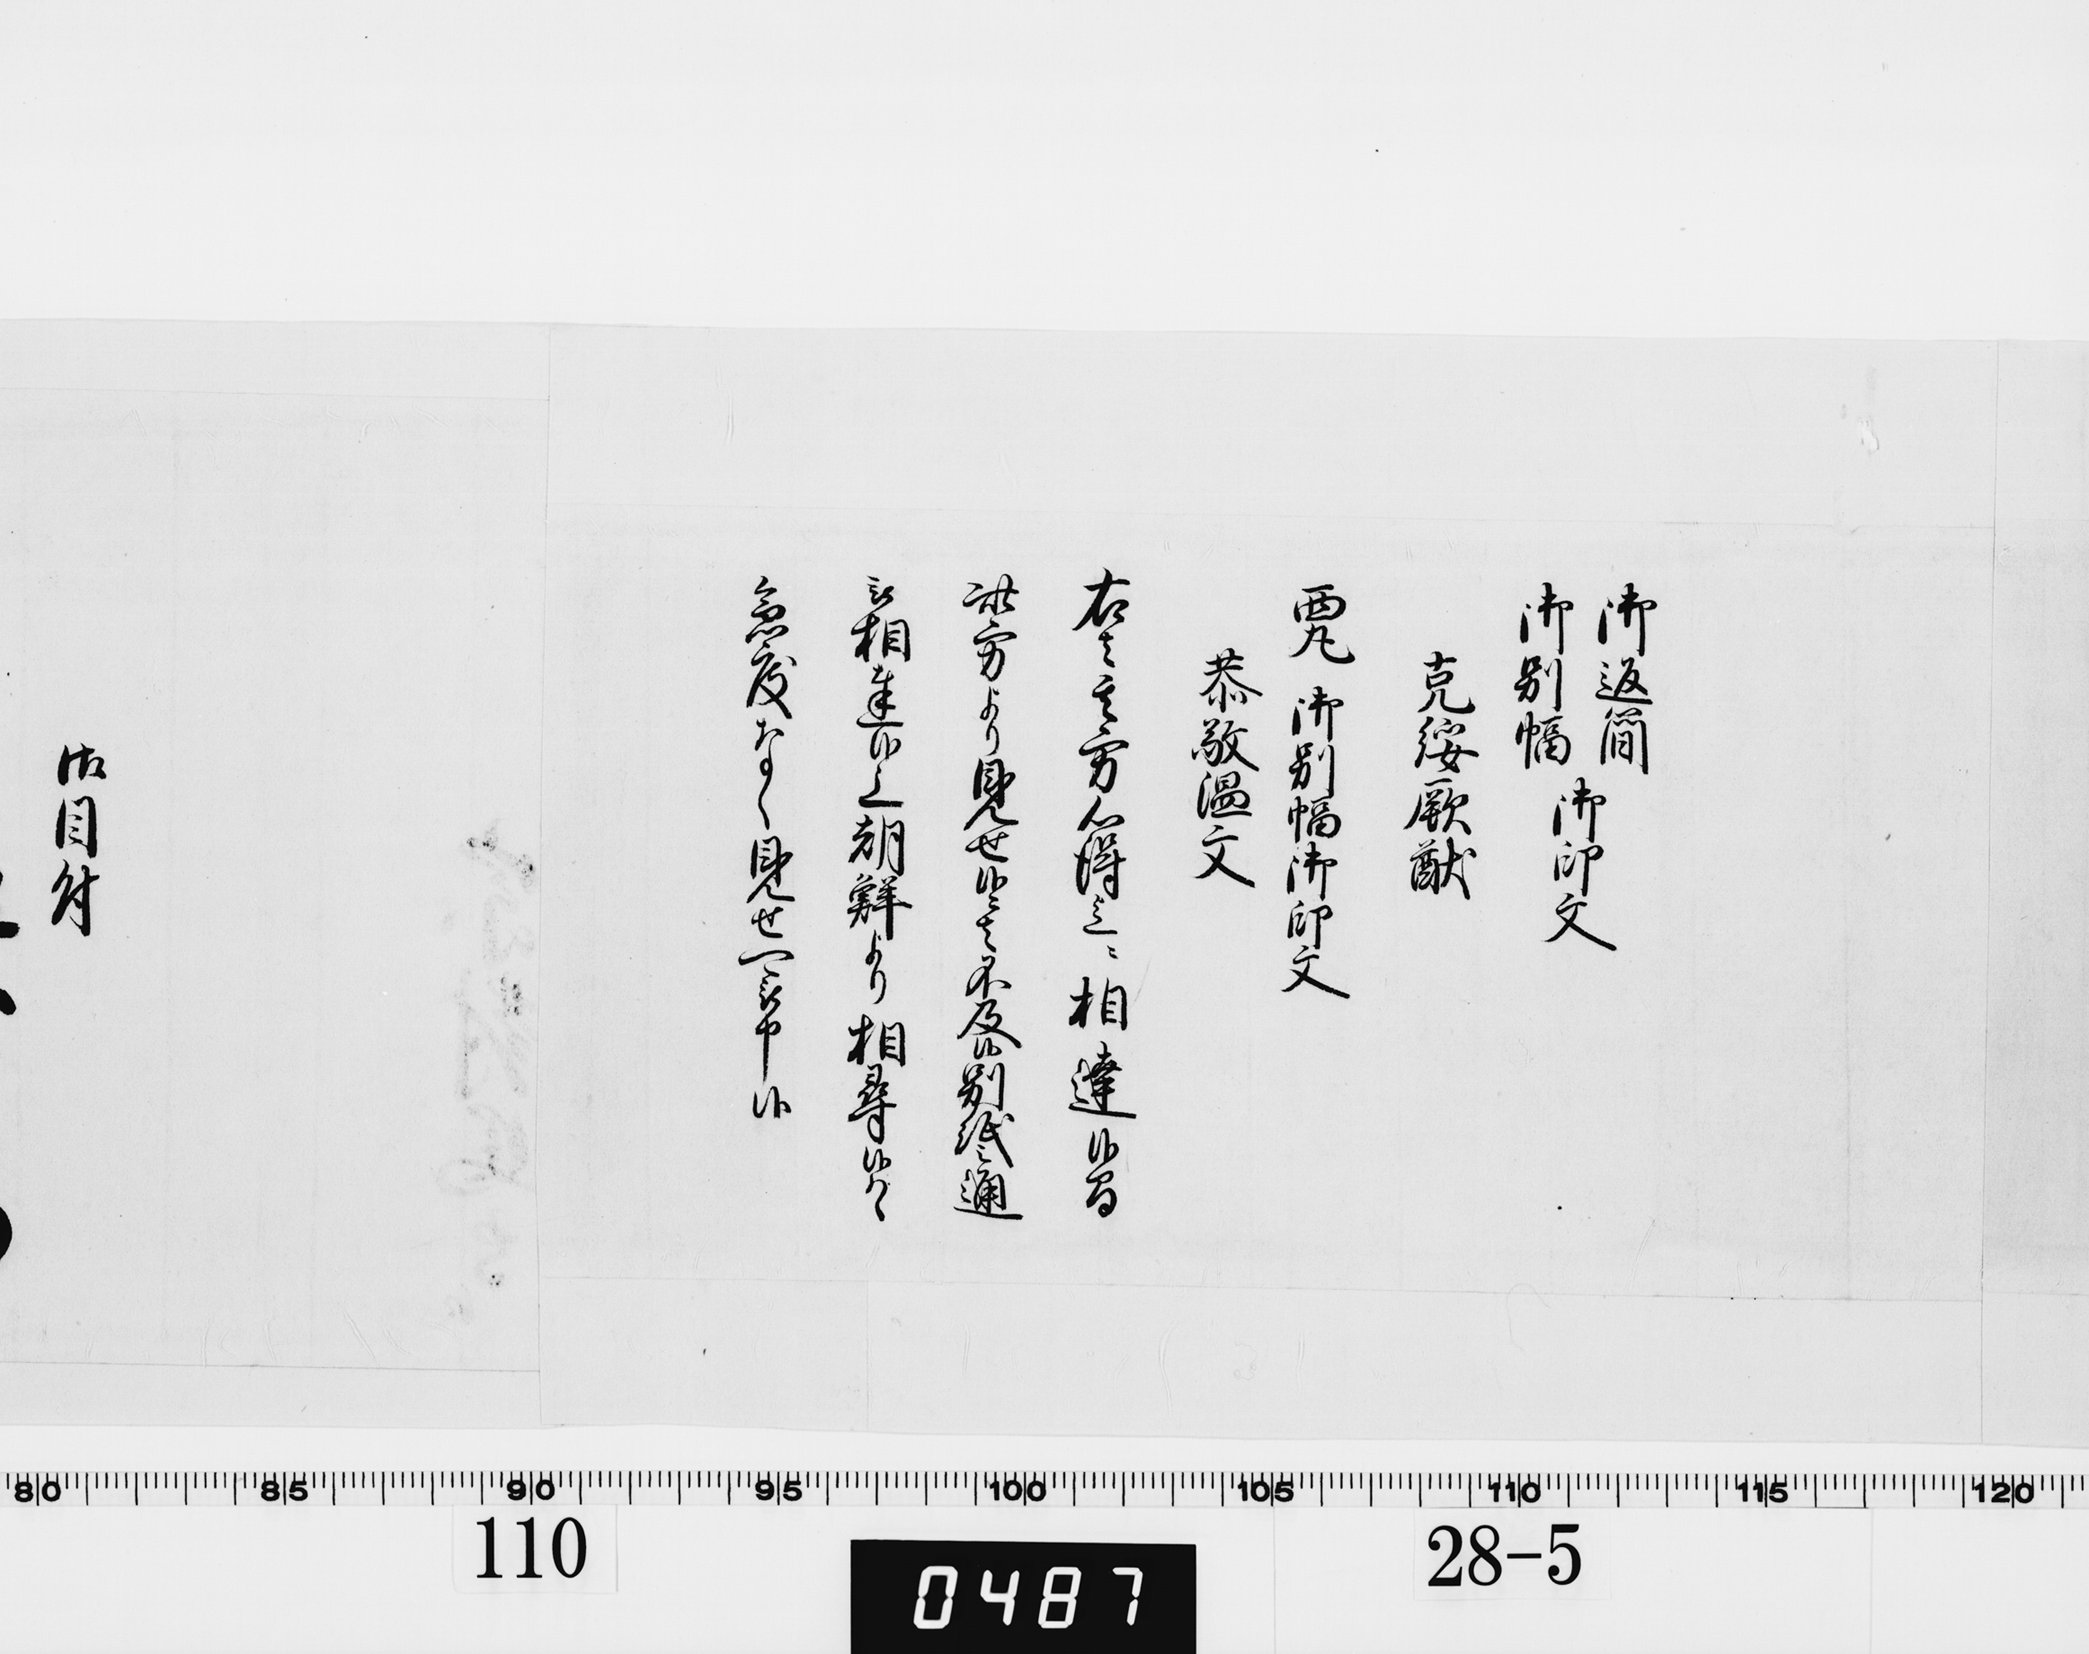 御返簡
御別幅
御印文
克綏厥猷
西丸　御別幅御印文
恭敬温文
右者其方心得迄ニ相達候間
此方より見せ候ニ者不及候別紙之通
被相達候上朝鮮より相尋候ハヽ
急度なく見せ可被申候
御目付
80 85 90 95 100 105 110 115 120
110
28-5
0487